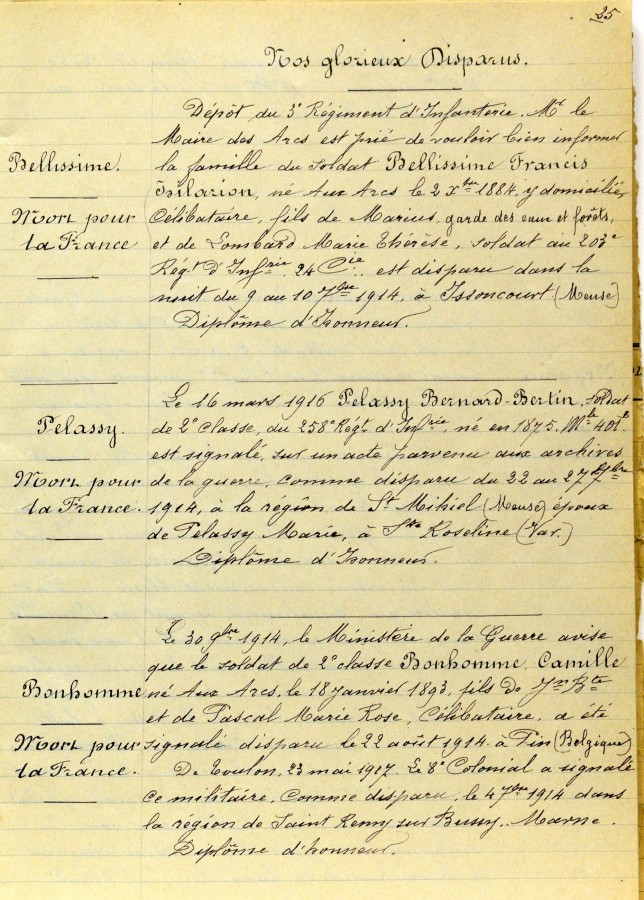 25
Nos glorieux Disparus.
Dépôt du 3e Régiment d'Infanterie. Mr le
Maire des Arcs est prié de vouloir bien informer
Bellissime.
la famille du soldat Bellissime Francis
Hilarion, né aux Arcs le 2 Xbre 1884, y domicilié,
Mort pour
Célibataire, fils de Marius, garde des eaux et forêts,
la France
et de Lombard Marie Thérèse, soldat au 203e
Régt d'Infrie, 24 Cie, est disparu dans la
nuit du 9 au 10 7bre 1914, à Issoncourt (Meuse)
Diplôme d'honneur.
Le 16 mars 1916 Pelassy Bernard-Bertin, soldat
Pelassy.
de 2e classe, du 258e Régt d'Infrie, né en 1875. Mle 401
est signalé, sur un acte parvenu aux archives
Mort pour
de la guerre, comme disparu du 22 au 27 7bre
la France.
1914, à la région de St Mihiel (Meuse) époux
de Pelassy Marie, à Ste Roseline (Var.)
Diplôme d'honneur.
Le 30 9bre 1914, le Ministère de la Guerre avise
que le soldat de 2e classe Bonhomme, Camille
Bonhomme
né Aux Arcs, le 18 janvier 1893, fils de Jn Bte
et de Pascal Marie Rose, Célibataire, a été
Mort pour
signalé disparu le 22 août 1914 à Tin (Belgique)
la France.
De Toulon, 23 mai 1917. Le 8e Colonial a signalé
ce militaire, comme disparu, le 4 7bre 1914 dans
la région de Saint Remy sur Bussy, Marne.
Diplôme d'honneur.